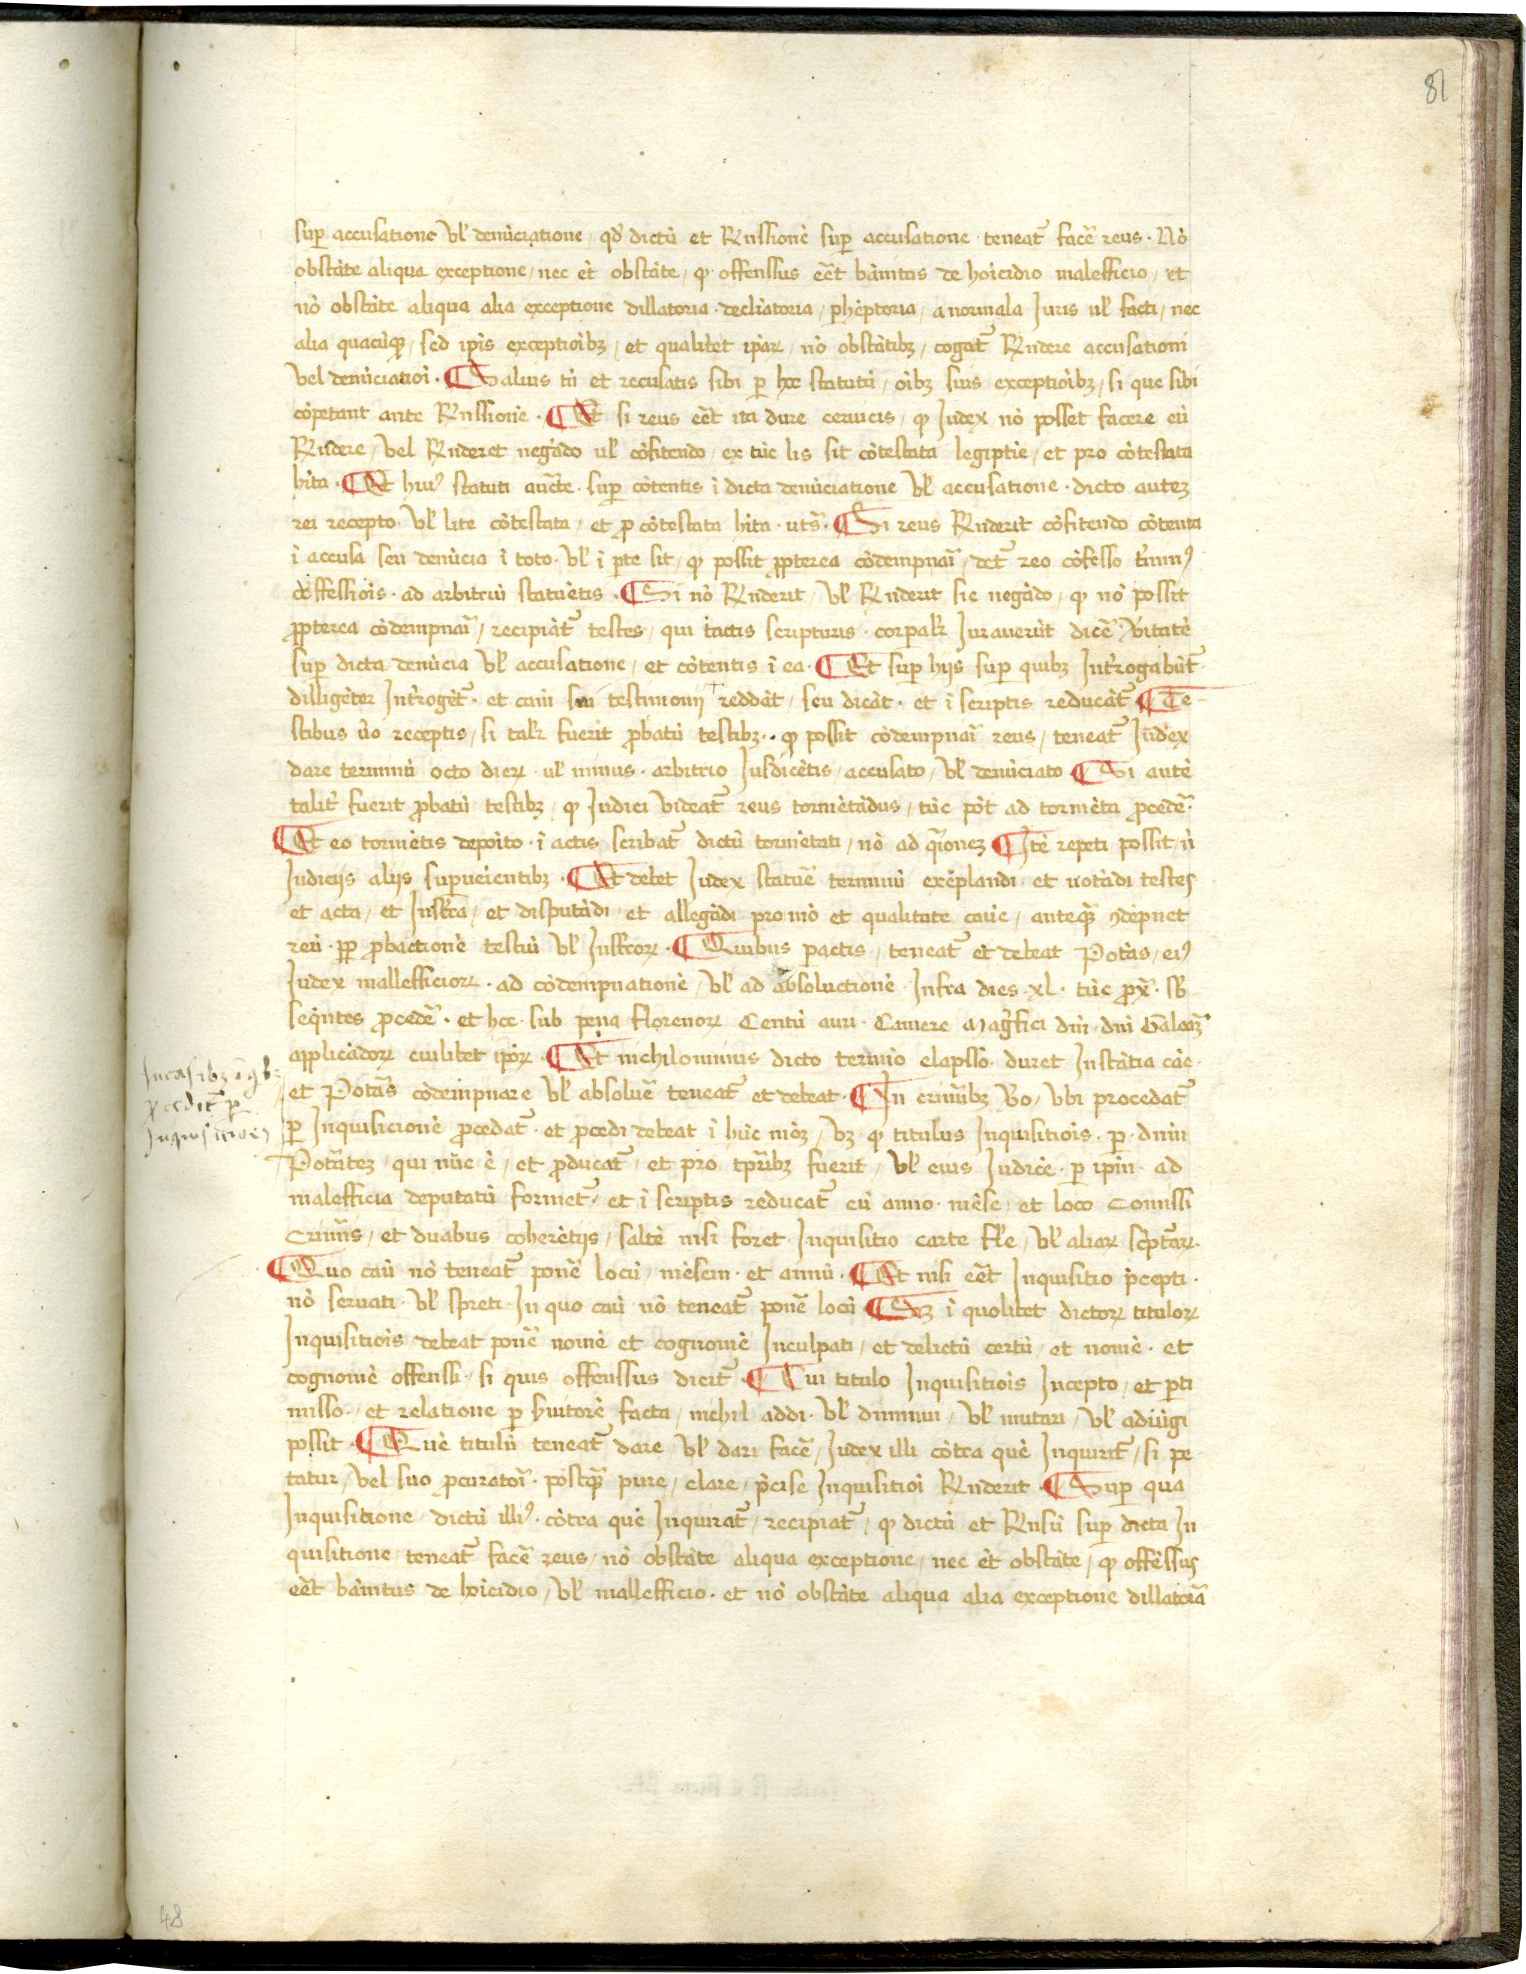 81
sup accusatione vl' denu̅ciatione / qd' dictu̅ et Rn̅ssione̅ sup accusatione teneat̅ face̅ reus · No̅
obsta̅te aliqua exceptione / nec et̅ obsta̅te / q̲ offenssus ee̅t ba̅nitus de ho̅icidio malefficio / et
no̅ obsta̅te aliqua alia exceptione dillatoria · decli̅atoria / phe̅ptoria / anormala Juris ul' facti / nec
alia quacu̅q̲ / sed ip̅is exceptio̅ib3 / et qualitet ip̅aꝝ / no̅ obsta̅tib3 / cogat̅ Rn̅dere accusationi
vel denu̅ciatio̅i · ¶ Saluis tn̅ et recusatis sibi p̲ hoc statutu̅ / o̅ib3 suis exceptio̅ib3 / si que sibi
co̅petant ante Rn̅ssione̅ · ¶ Et si reus ee̅t ita dure ceruicis / q̲ Judex no̅ posset facere eu̅
Rn̅dere / vel Rn̅deret nega̅do ul' co̅fitendo / ex tu̅c lis sit co̅testata legiptie̅ / et pro co̅testata
h̅ita · ¶ Et hui9 statuti auc̅te · sup co̅tentis i̅ dicta denu̅ciatione vl' accusatione · dicto autez
rei recepto · vl' lite co̅testata / et p̲ co̅testata h̅ita · ut s̅ · ¶ Si reus Rn̅derit co̅fitendo co̅tenta
i̅ accusa seu denu̅cia i̅ toto · vl' i̅ p̲te sit / q̲ possit pp̲terea co̅dempnai̅ / det̅ reo co̅fesso t̅min9
co̅ffessio̅is · ad arbitriu̅ statue̅tis · ¶ Si no̅ Rn̅derit / vl' Rn̅derit sic nega̅do / q̲ no̅ possit
pp̲terea co̅dempnai̅ / recipia̅t̅ testes / qui tactis scripturis · corp̲alr̅ Juraueru̅t dice̅ v̅itate̅
sup dicta denu̅cia vl' accusatione / et co̅tentis i̅ ea · ¶ Et sup hijs sup quib3 Int̅rogabu̅t̅
dillige̅ter Int̅roge̅t̅ · et cam̅ sui testimonij redda̅t / seu dica̅t · et i̅ scriptis reduca̅t̅ ¶ Te-
stibus u̅o receptis / si talr̅ fuerit p̲batu̅ testib3 · q̲ possit co̅dempnai̅ reus / teneat̅ Judex
dare terminu̅ octo dieꝝ · ul' minus · arbitrio Jusdice̅tis / accusato / vl' denu̅ciato ¶ Si aute̅
talit̅ fuerit p̲batu̅ testib3 / q̲ Judici videat̅ reus torme̅ta̅dus / tu̅c po̅t ad torme̅ta p̲cede̅ ·
¶ Et eo torme̅tis depo̅ito · i̅ actis scribat̅ dictu̅ torme̅tati / no̅ ad q̅ionez ¶ Ite̅ repeti possit / i̅
Judicijs alijs sup̲ue̅ientib3 · ¶ Et debet Judex statue̅ terminu̅ exe̅plandi · et nota̅di testes
et acta / et Instr̅a / et disputa̅di / et allega̅di pro mo̅ et qualitate cau̅e / anteq̅ 9de̅pnet
reu̅ · pp̲ p̲bactione̅ testiu̅ vl' Instr̅oꝝ · ¶ Quibus p̲actis / teneat̅ et debeat Pota̅s / ei9
Judex malefficioꝝ · ad co̅dempnatione̅ / vl' ad absoluctione̅ · Infra dies · xl · tu̅c p̲x̅ · sb̅
seq̅ntes p̲cede̅ · et hoc · sub pena florenoꝝ Centu̅ auri · Camere Mag̅fici dn̅i · dn̅i Galeaz̅
applica̅doꝝ cuilibet ip̅oꝝ · ¶ Et nichilominus dicto termi̅o elapsso · duret Insta̅tia ca̅e
et Pota̅s co̅dempnare vl' absolue̅ teneat̅ et debeat · ¶ In crimi̅b3 vo̅ / vbi procedat̅
p̲ Inquisicione̅ p̲cedat̅ · et p̲cedi debeat i̅ hu̅c mo̅z / vz̅ · q̲ titulus Inquisitio̅is · p̲ · dn̅m
Pota̅tez / qui nu̅c e̅ / et p̲ducat̅ / et pro tp̅rib3 fuerit / vl' eius Judice̅ · p̲ ip̅m · ad
malefficia deputatu̅ formet̅ / et i̅ scriptis reducat̅ cu̅ anno · me̅se / et loco comissi
crimi̅s / et duabus cohere̅tijs / salte̅ nisi foret Inquisitio carte fl'e / vl' aliaꝝ sc̅pt̅aꝝ ·
¶ Quo cau̅ no̅ teneat̅ pone̅ locu̅ / me̅sem · et annu̅ · ¶ Et nisi ee̅t Inquisitio p̅cepti ·
no̅ seruati · vl' spreti · In quo cau̅ no̅ teneat̅ pone̅ locu̅ ¶ S3 i̅ quolibet dictoꝝ tituloꝝ
Inquisitio̅is debeat pone̅ nome̅ et cognome̅ Inculpati / et delictu̅ certu̅ / et nome̅ · et
cognome̅ offenssi · si quis offenssus dicit̅ · ¶ Cui titulo Inquisitio̅is Incepto / et p̲ti
misso / et relatione p̲ s̅uitore̅ facta / nichil addi · vl' diminui / vl' mutari / vl' adiu̅gi
possit · ¶ Que̅ titulu̅ teneat̅ dare / vl' dari face̅ / Judex illi co̅tra que̅ Inquirit̅ / si pe-
tatur / vel suo p̲curatoi̅ · postq̅ pure / clare / p̅cise Inquisitio̅i Rn̅derit · ¶ Sup qua
Inquisitione / dictu̅ illi9 · co̅tra que̅ Inquirat̅ / recipiat̅ / q̲ dictu̅ et Rn̅su̅ sup dicta In-
quisitione / teneat̅ face̅ reus / no̅ obsta̅te aliqua exceptione / nec et̅ obsta̅te / q̲ offe̅ssus
ee̅t ba̅nitus de ho̅icidio / vl' mallefficio · et no̅ obsta̅te aliqua alia exceptione dillatoia̅
In casib3
p̲cedit̅ p̲
Inquisitione̅
48